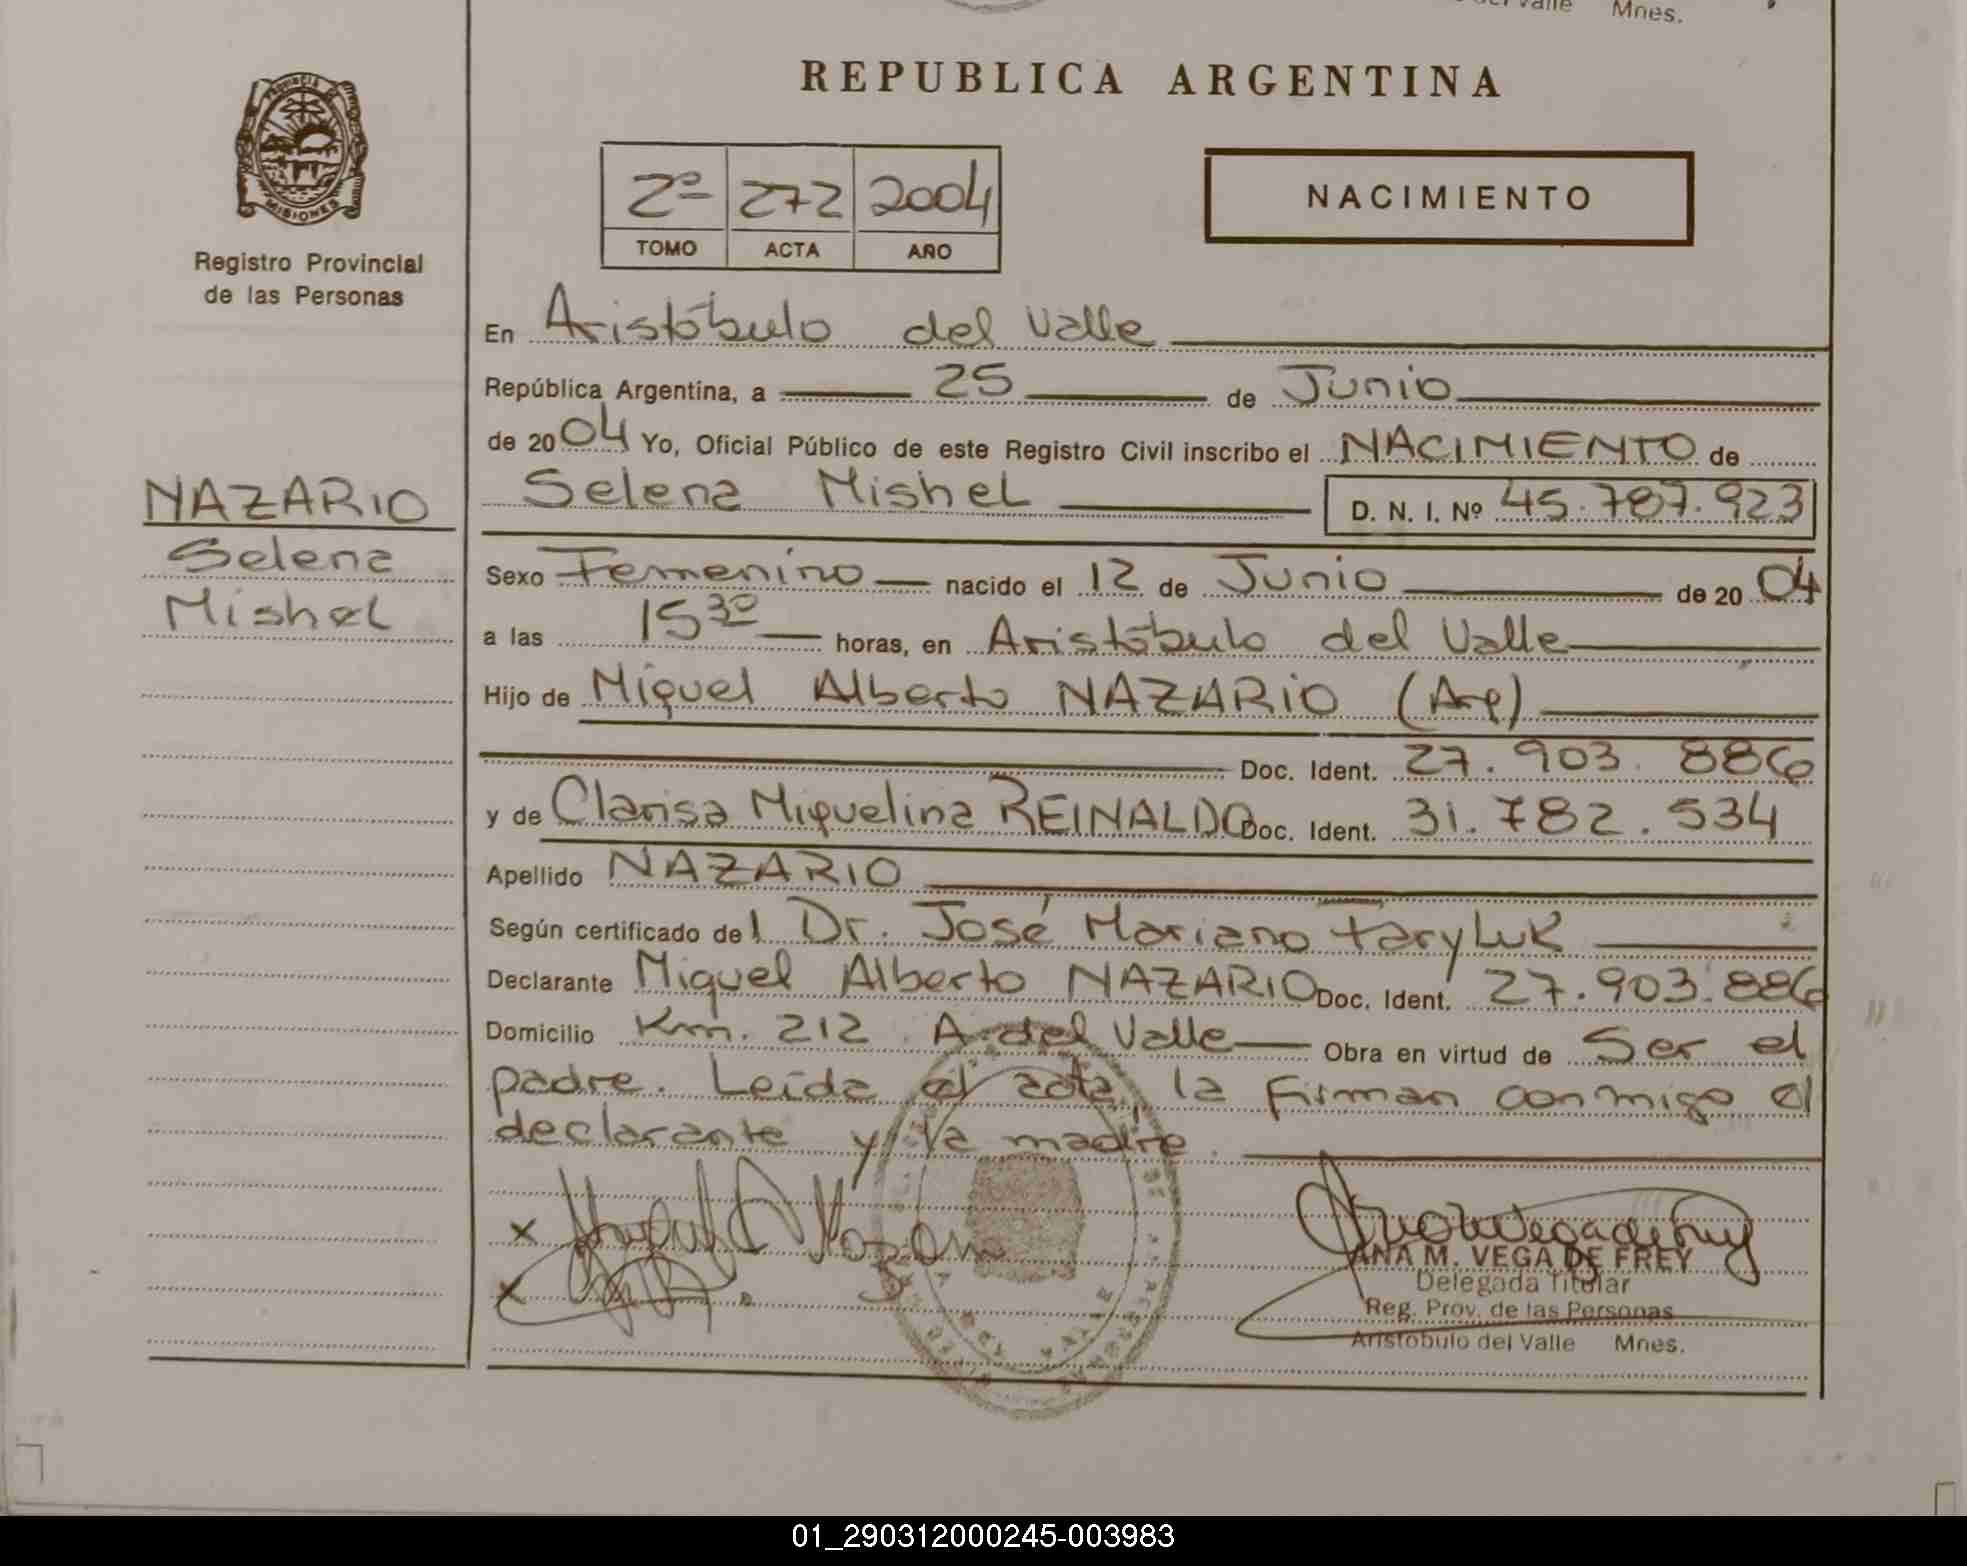 del Valle Mnes.
REPUBLICA ARGENTINA
PROVINCIA DE
MISIONES
Registro Provincial
de las Personas
2º 272 2004
TOMO ACTA AÑO
NACIMIENTO
En Aristóbulo del Valle
República Argentina, a 25 de Junio
de 2004 Yo, Oficial Público de este Registro Civil inscribo el NACIMIENTO de
Selena Mishel D. N. I. Nº 45.787.923
NAZARIO
Selena
Mishel
Sexo Femenino nacido el 12 de Junio de 2004
a las 15 30 horas, en Aristóbulo del Valle
Hijo de Miguel Alberto NAZARIO (Arg)
Doc. Ident. 27.903.886
y de Clarisa Miguelina REINALDO Doc. Ident. 31.782.534
Apellido NAZARIO
Según certificado del Dr. José Mariano Faryluk
Declarante Miguel Alberto NAZARIO Doc. Ident. 27.903.886
Domicilio Km. 212 A. del Valle Obra en virtud de Ser el
padre. Leída el acta, la firman conmigo el
declarante y la madre.
x
x
ANA M. VEGA DE FREY
Delegada Titular
Reg. Prov. de las Personas
Aristóbulo del Valle Mnes.
01_290312000245-003983